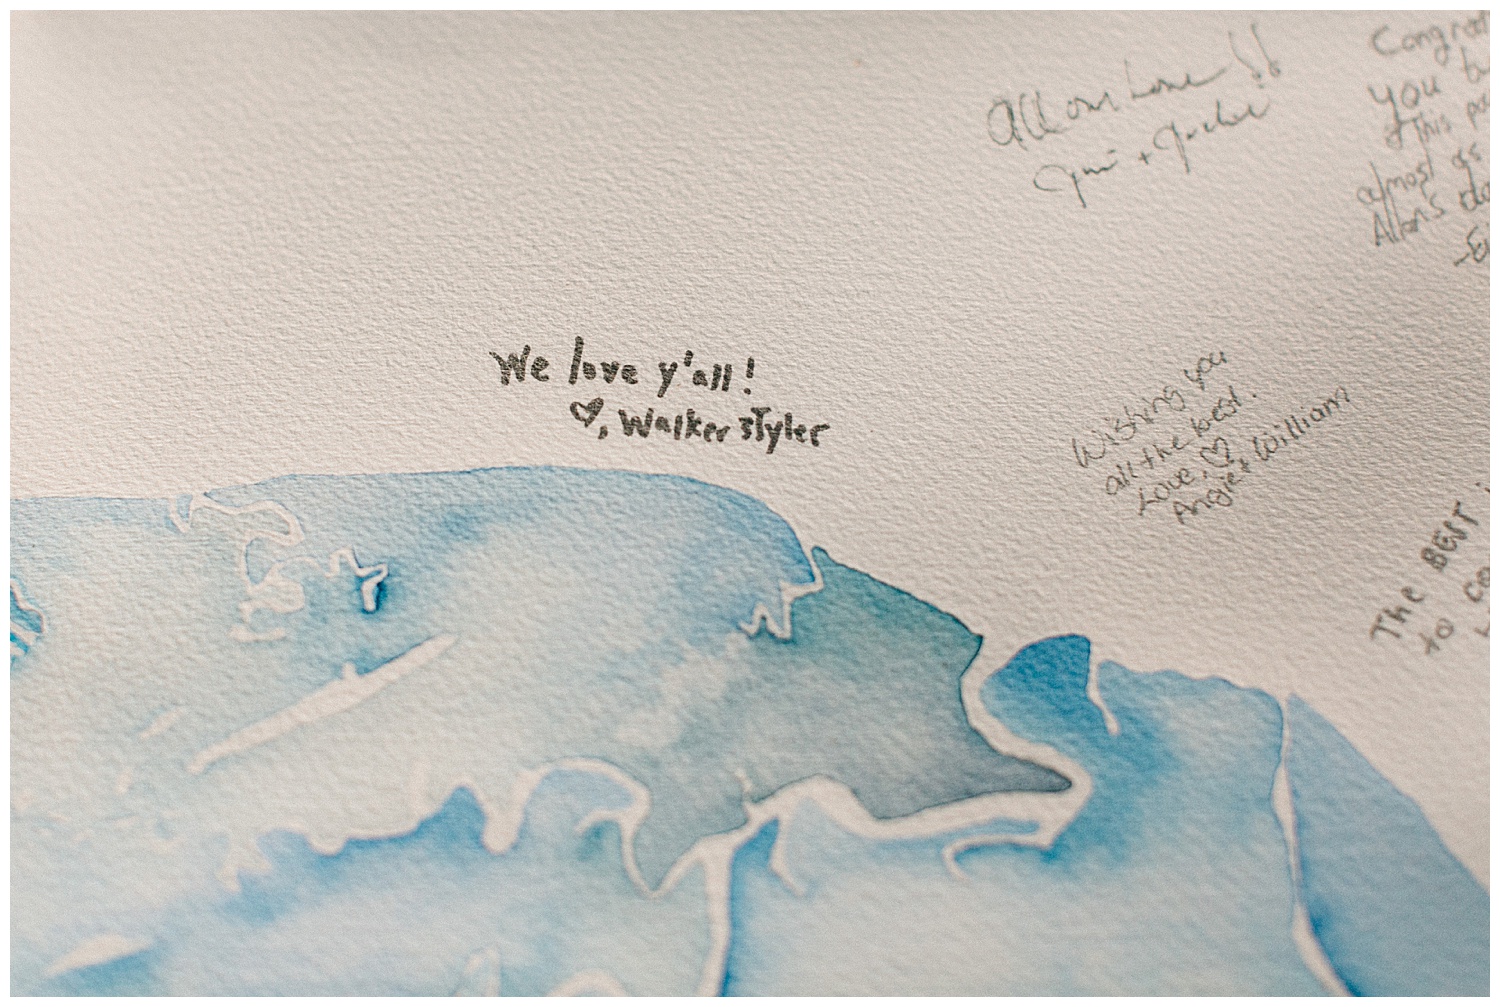 All our love !!
+
Congrat
You
This
almost as
Allan's
We love y'all!
♡, Walker & Tyler
Wishing you
all the best.
Love, ♡
Angie & William
The BEST
to